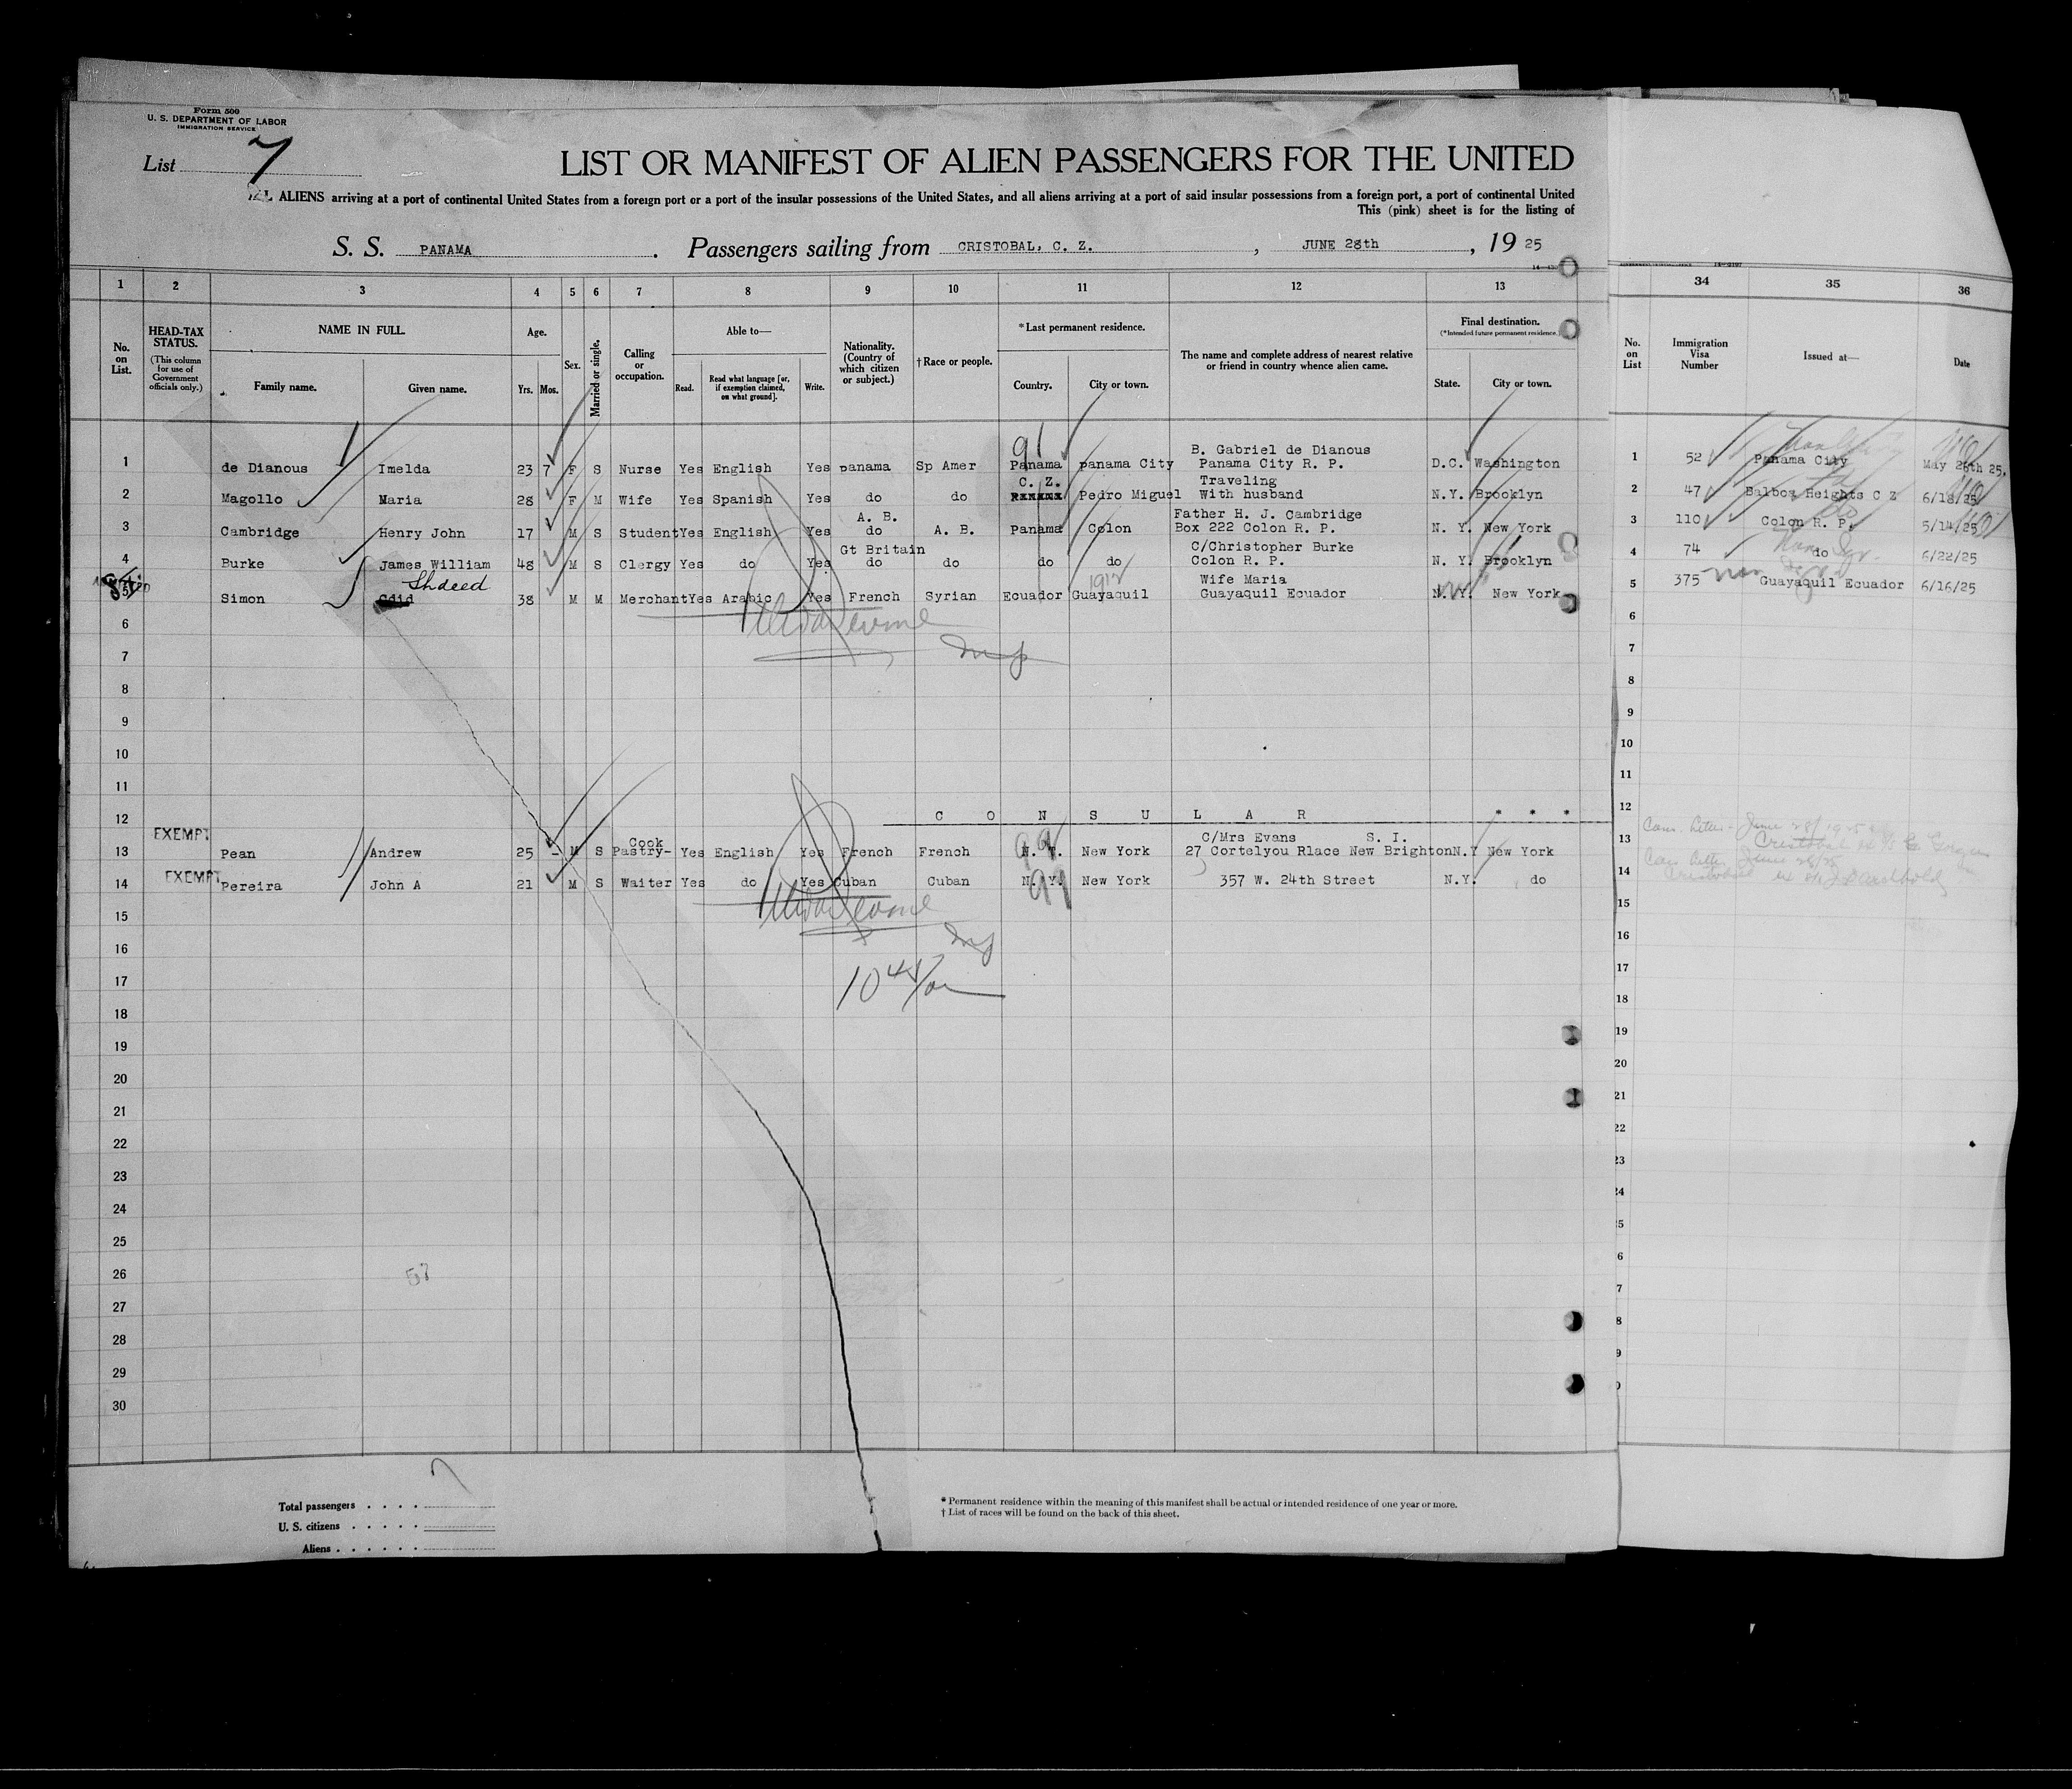 Form 500
U. S. DEPARTMENT OF LABOR
IMMIGRATION SERVICE
List 7
LIST OR MANIFEST OF ALIEN PASSENGERS FOR THE UNITED
ALL ALIENS arriving at a port of continental United States from a foreign port or a port of the insular possessions of the United States, and all aliens arriving at a port of said insular possessions from a foreign port, a port of continental United
This (pink) sheet is for the listing of
S. S. PANAMA. Passengers sailing from CRISTOBAL, C. Z. , JUNE 28th , 19 25
1 2 3 4 5 6 7 8 9 10 11 12 13 34 35 36
No. on List. HEAD-TAX STATUS. (This column for use of Government officials only.) NAME IN FULL. Family name. Given name. Age. Yrs. Mos. Sex. Married or single. Calling or occupation. Able to— Read. Read what language [or, if exemption claimed, on what ground]. Write. Nationality. (Country of which citizen or subject.) †Race or people. *Last permanent residence. Country. City or town. The name and complete address of nearest relative or friend in country whence alien came. Final destination. (*Intended future permanent residence.) State. City or town. No. on List Immigration Visa Number Issued at— Date
91
B. Gabriel de Dianous
1 de Dianous Imelda 23 7 F S Nurse Yes English Yes panama Sp Amer Panama panama City Panama City R. P. D.C. Washington 1 52 Panama City May 28th 25.
C. Z. Traveling
2 Magollo Maria 28 F M Wife Yes Spanish Yes do do Pedro Miguel With husband N.Y. Brooklyn 2 47 Balboa Heights C Z 6/18/25
A. B. Father H. J. Cambridge
3 Cambridge Henry John 17 M S Student Yes English Yes do A. B. Panama Colon Box 222 Colon R. P. N. Y. New York 3 110 Colon R. P. 5/14/25
Gt Britain C/Christopher Burke
4 Burke James William 48 M S Clergy Yes do Yes do do do do Colon R. P. N. Y. Brooklyn 4 74 do 6/22/25
Shdeed 1912 Wife Maria
5 Simon 38 M M Merchant Yes Arabic Yes French Syrian Ecuador Guayaquil Guayaquil Ecuador N. Y. New York 5 375 Guayaquil Ecuador 6/16/25
6 6
7 7
8 8
9 9
10 10
11 11
12 C O N S U L A R * * * 12
EXEMPT Cook 99 C/Mrs Evans S. I.
13 Pean Andrew 25 - M S Pastry- Yes English Yes French French N. Y. New York 27 Cortelyou Rlace New Brighton N.Y New York 13
EXEMPT
14 Pereira John A 21 M S Waiter Yes do Yes Cuban Cuban N. Y. 99 New York 357 W. 24th Street N.Y. do 14
15 15
16 16
17 17
10 45/
18 18
19 19
20 20
21 21
22 22
23 23
24 24
25 5
26 6
27 7
28 8
29 9
30
Total passengers . . . .
U. S. citizens . . . . .
Aliens . . . . . .
* Permanent residence within the meaning of this manifest shall be actual or intended residence of one year or more.
† List of races will be found on the back of this sheet.